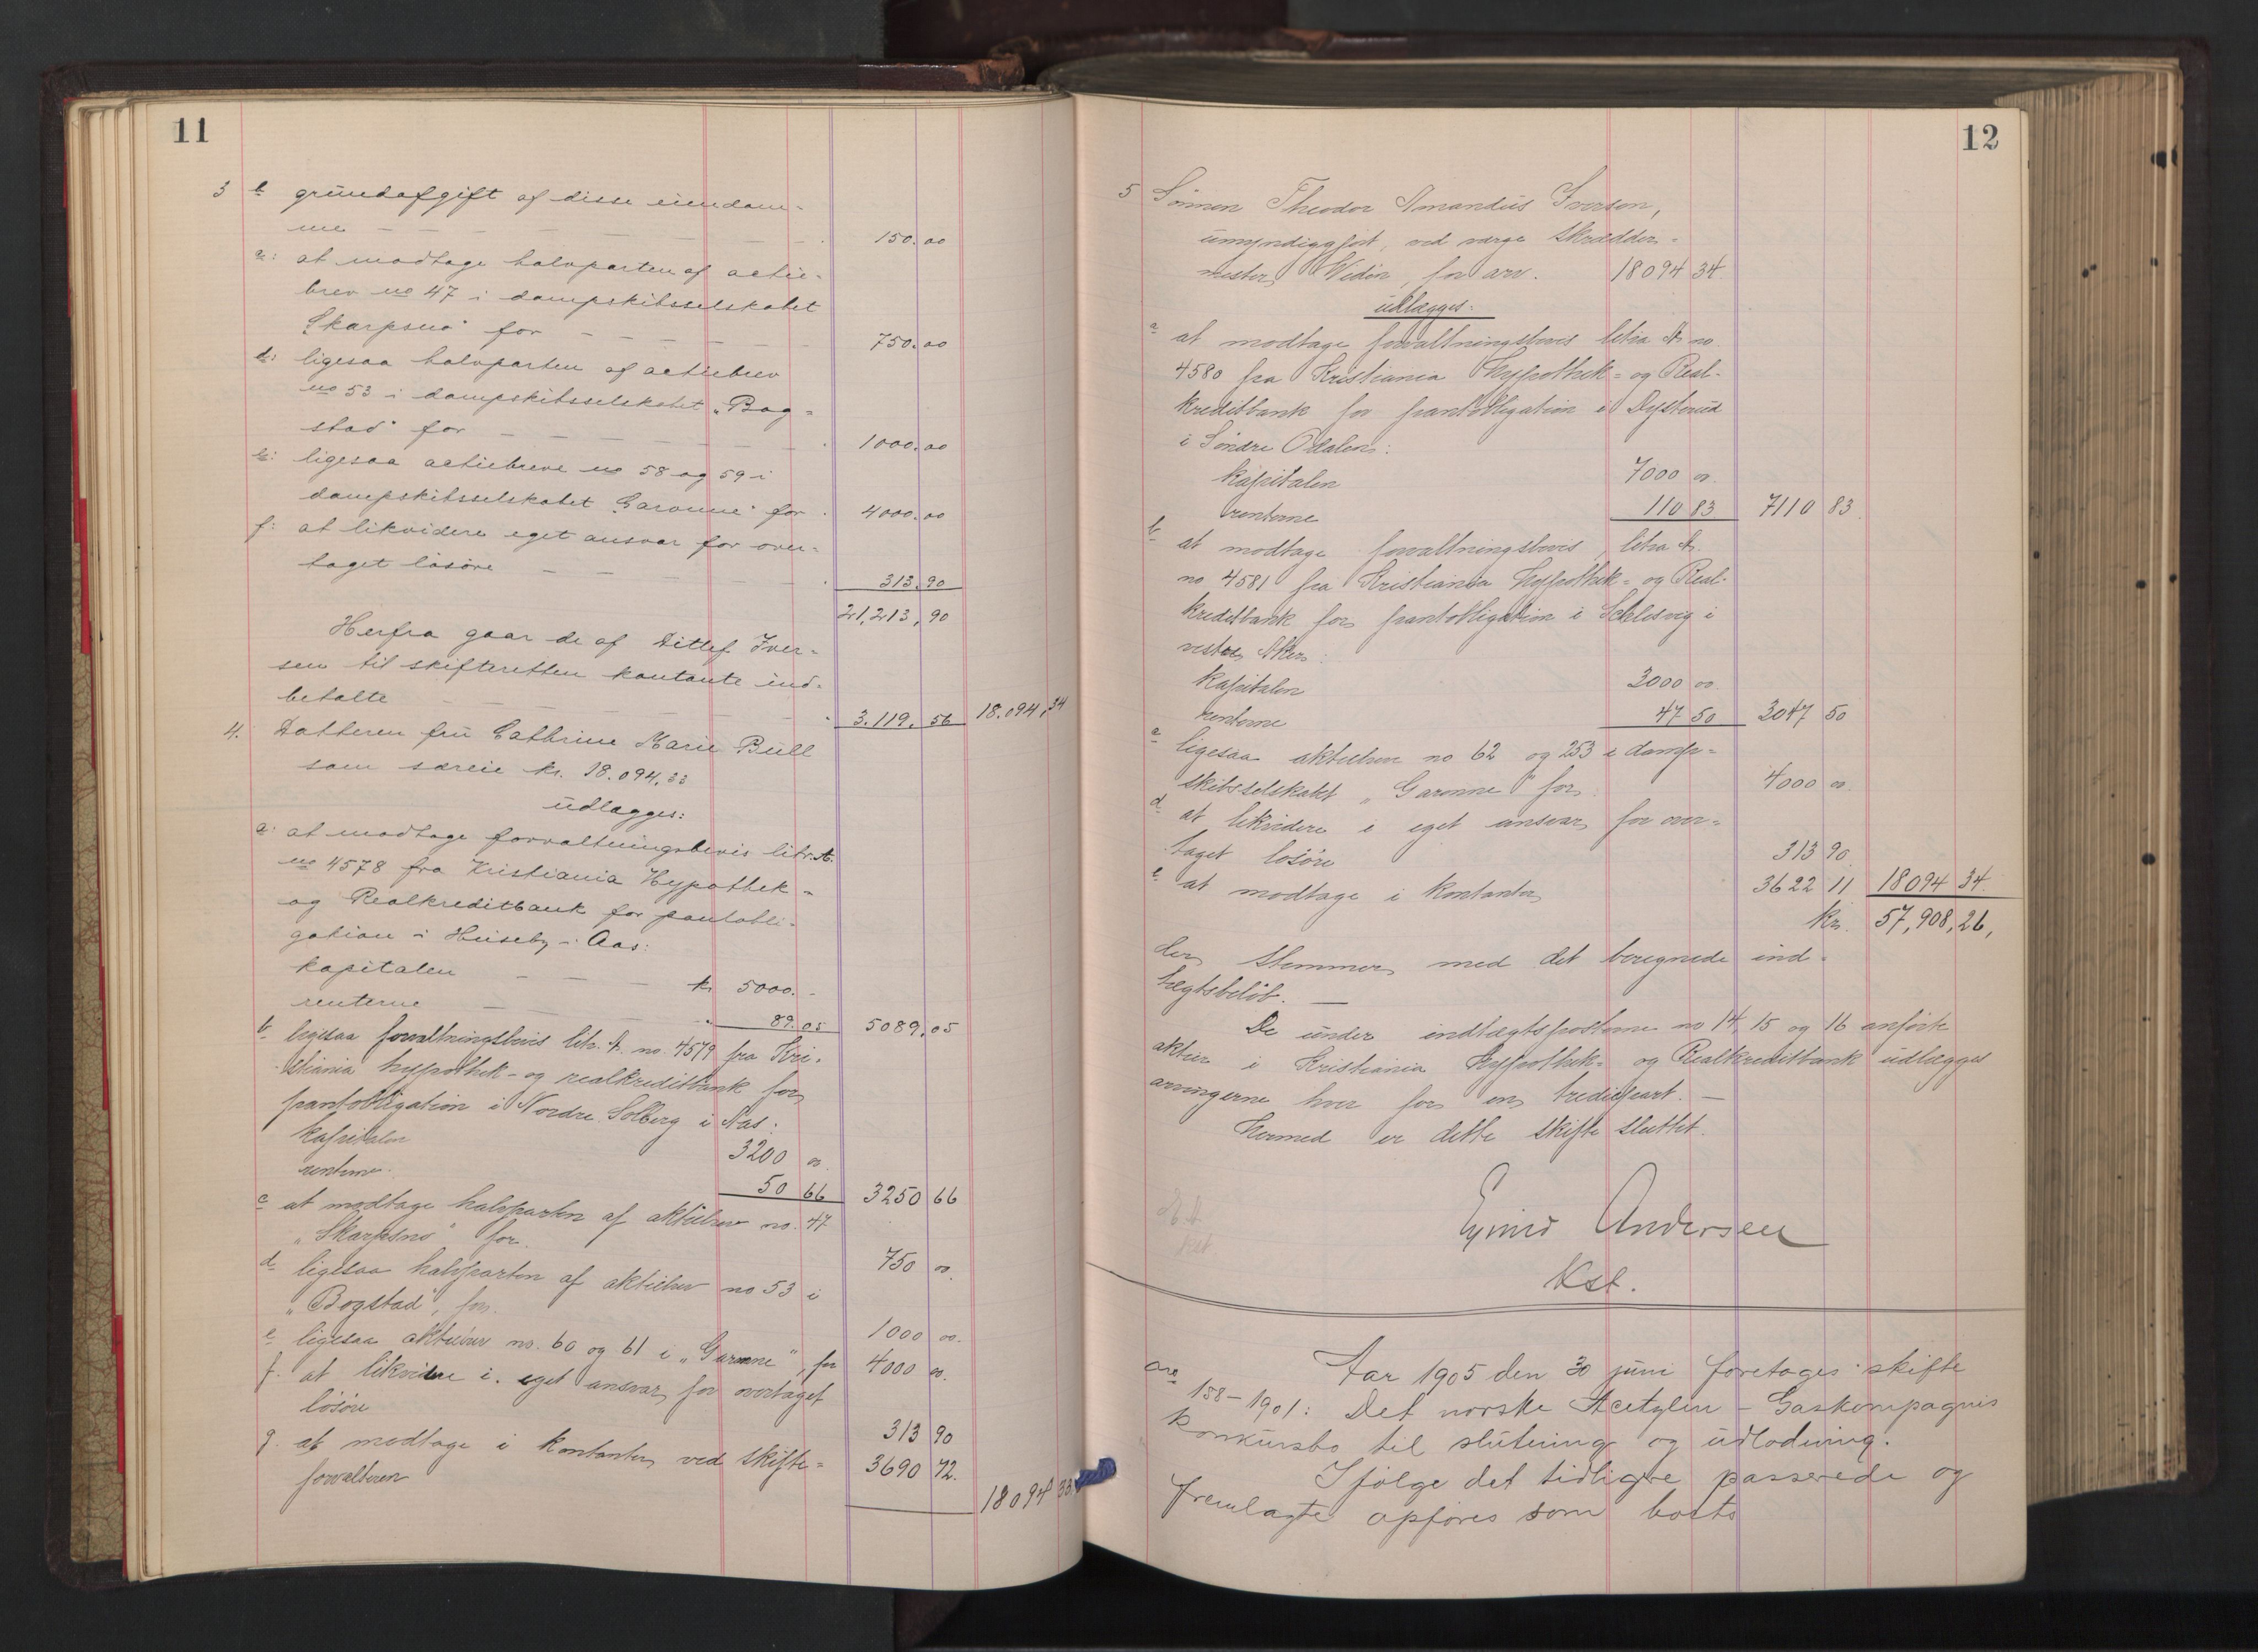 11
3 b grundafgift af disse eiendom-
me — — — — — — . 150.00
c: at modtage halvparten af actie-
brev no 47 i dampskibsselskabet
"Skarpsno" for — — — — — 750.00
d: ligesaa halvparten af actiebrev
no 53 i dampskibsselskabet "Bog-
stad" for — — — — — — . 1000.00
e: ligesaa actiebreve no 58 og 59 i
dampskibsselskabet "Garonne" for . 4000.00
f: at likvidere eget ansvar for over-
taget løsøre — — — — — . 313.90
21,213,90
Herfra gaar de af Ditlef Iver-
sen til skifteretten kontante ind-
betalte — — — — — — . 3.119.56 18.094,34
4. Datteren fru Cathrine Marie Bull
som særeie kr. 18.094,33
udlægges:
a: at modtage forvaltningsbevis litr. A.
no 4578 fra Kristiania Hypothek-
og Realkreditbank for pantobli-
gation i Huseby i Aas:
kapitalen — — — kr 5000.-
renterne — — — " 89.05 5089.05
b. ligesaa forvaltningsbevis litr. A. no. 4579 fra Kri-
stiania hypothek- og realkreditbank for
pantobligation i Nordre Solberg i Aas:
kapitalen 3200 00.
renterne. 50 66 3250 66
c at modtage halvparten af aktiebrev no. 47
"Skarpsno" for 750 00.
d ligesaa halvparten af aktiebrev no 53 i
"Bogstad", for. 1000 00.
e ligesaa aktiebrev no. 60 og 61 i "Garonne", for 4000 00.
f. at likvidere i. eget ansvar for overtaget
løsøre 313 90
g. at modtage i kontanter ved skifte-
forvalteren 3690 72. 18094 33.
12
5 Sønnen Theodor Amandus Iversen,
umyndiggjort, ved værge Skrædder-
mester Widén, for arv. 18094 34
udlægges:
a at modtage forvaltningsbevis litra A. no
4580 fra Kristiania Hypothek- og Real-
kreditbank for pantobligation i Dysterud
i Søndre Odalen:
kapitalen 7000 00.
renterne 110 83 7110 83.
b at modtage forvaltningsbevis, litra A.
no 4581 fra Kristiania Hypothek- og Real-
kreditbank for pantobligation i Schlesvig i
vestre Aker:
kapitalen 3000 00.
renterne 47 50 3047 50
c ligesaa aktiebrev no 62 og 253 i damp-
skibsselskabet "Garonne" for 4000 00.
d at likvidere i eget ansvar for over-
taget løsøre 313 90.
e at modtage i kontanter 3622 11 18094 34.
kr. 57,908,26,
der stemmer med det beregnede ind-
tægtsbeløb. —
De under indtægtsposterne no 14, 15 og 16 anførte
aktier i Kristiania Hypothek- og Realkreditbank udlægges
arvingerne hver for en trediepart. —
Hermed er dette skifte sluttet.
Eyvind Andersen
Kst.
Aar 1905 den 30 juni foretoges skifte
158-1901: Det norske Acetylen-Gaskompagnis
konkursbo til slutning og udlodning.
Ifølge det tidligere passerede og
fremlagte opføres som boets